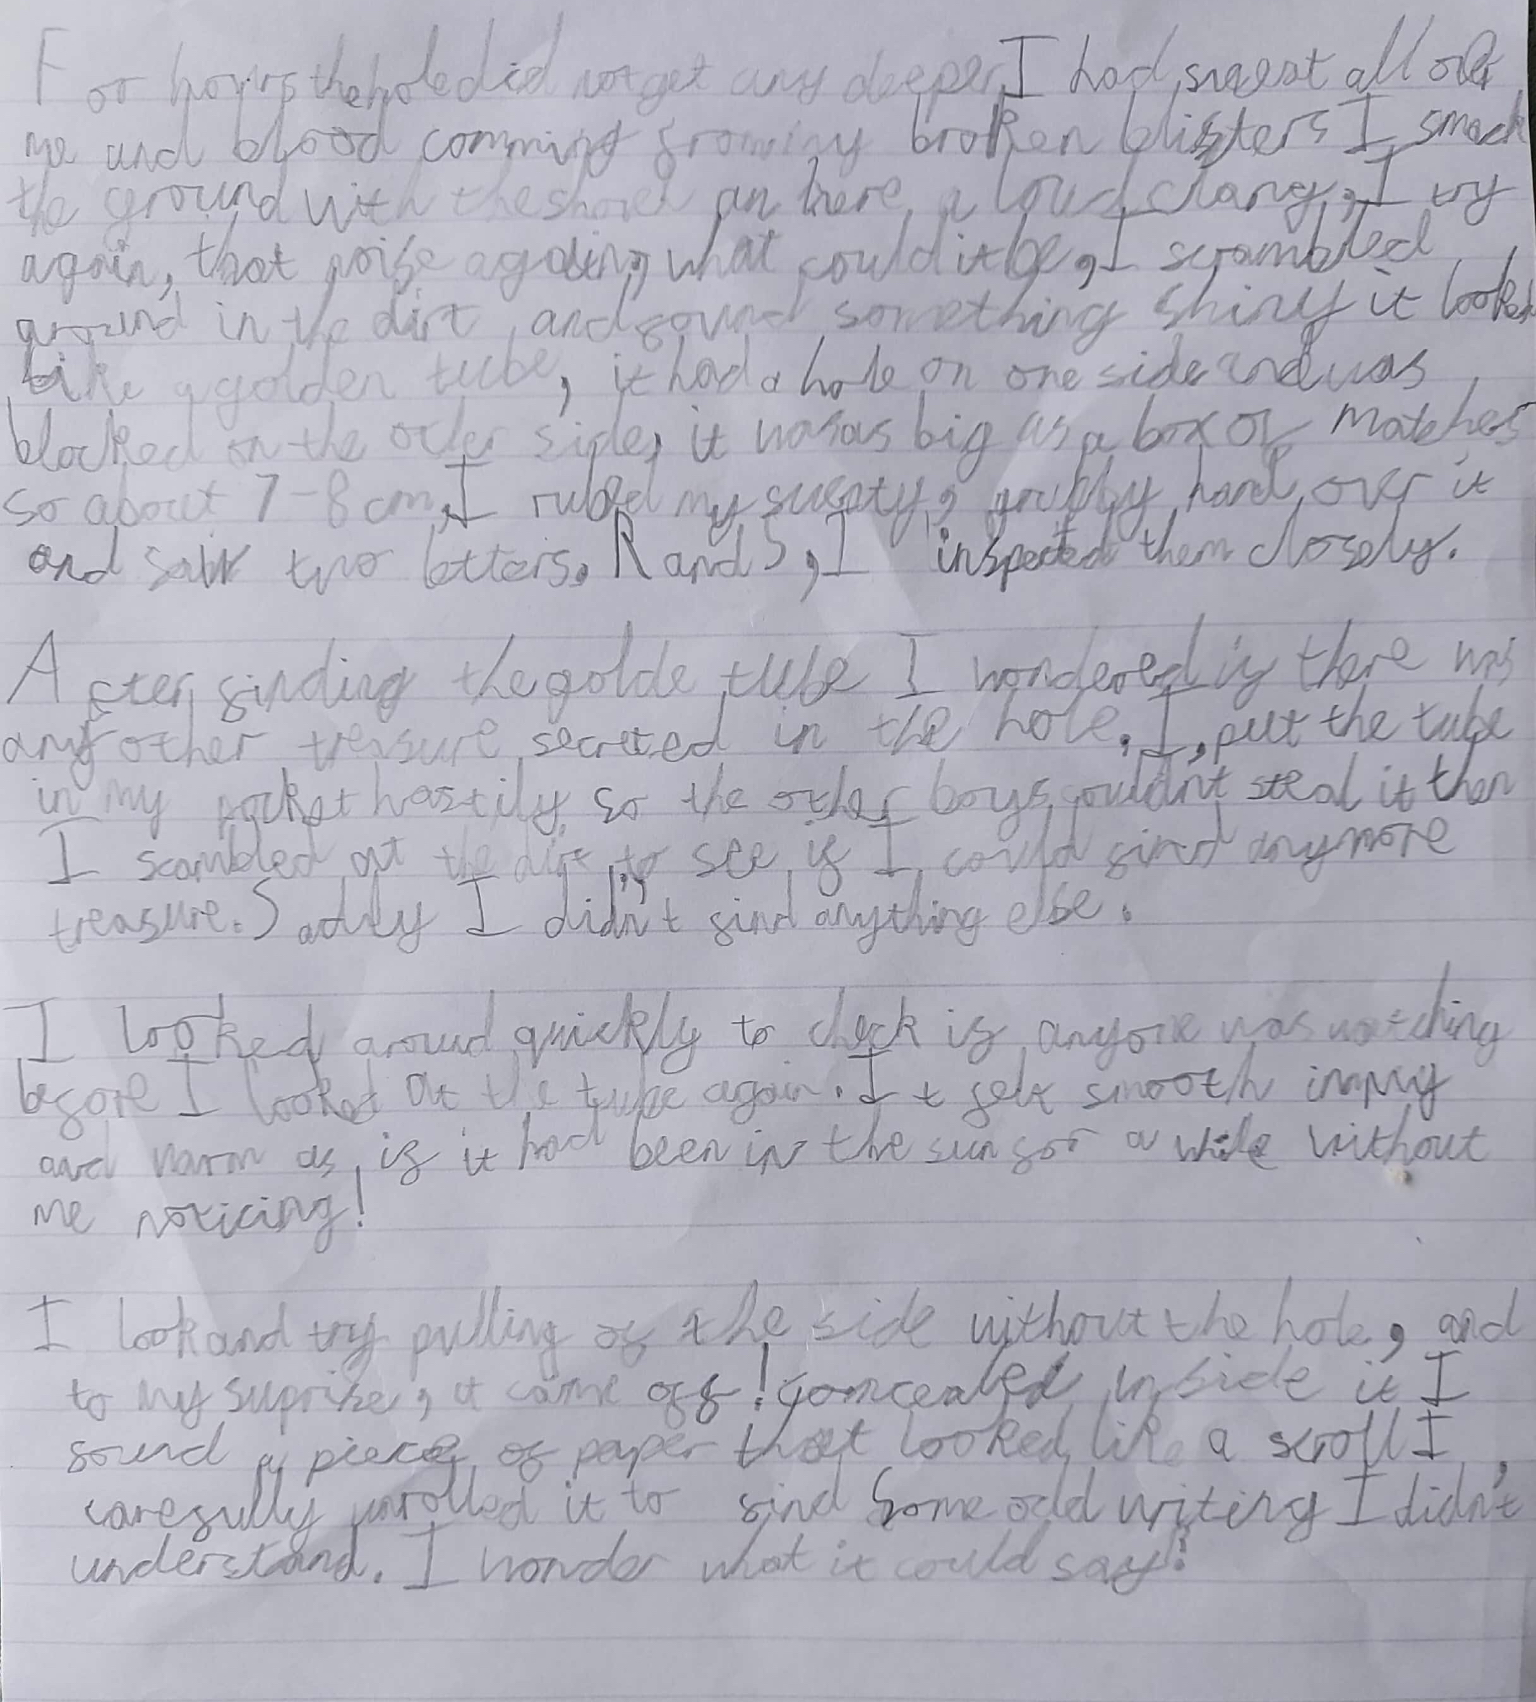 For hours the hole did not get any deeper, I had sweat all over
me and blood comming from my broken blisters I smack
the ground with the shovel an here a loud clang, I try
again, that noise again, what could it be, I scrambled
around in the dirt and found something shiny it looked
like a golden tube, it had a hole on one side and was
blocked on the other side, it was as big as a box of matches
so about 7-8 cm, I rubed my swenty, grubby hand over it
and saw two letters. R and S, I inspected them closely.
After finding the golde tube I wondered if there was
any other treasure secreted in the hole. I put the tube
in my pocket hastily so the other boys couldn't steal it then
I scambled at the dirt to see if I could find anymore
treasure. Sadly I didn't find anything else.
I looked around quickly to check if anyone was watching
before I looked at the tube again. It felt smooth in my
and warm as if it had been in the sun for a while without
me noticing!
I look and try pulling of the side without the hole, and
to my suprise, it came off! Concealed inside it I
found a piece of paper that looked like a scroll I
carefully unrolled it to find some odd writing I didn't
understand. I wonder what it could say!